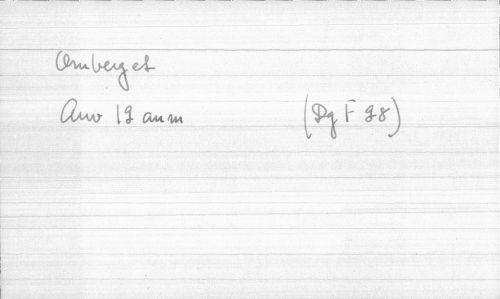 Omberget
Anv 19 anm (Dg F 98)